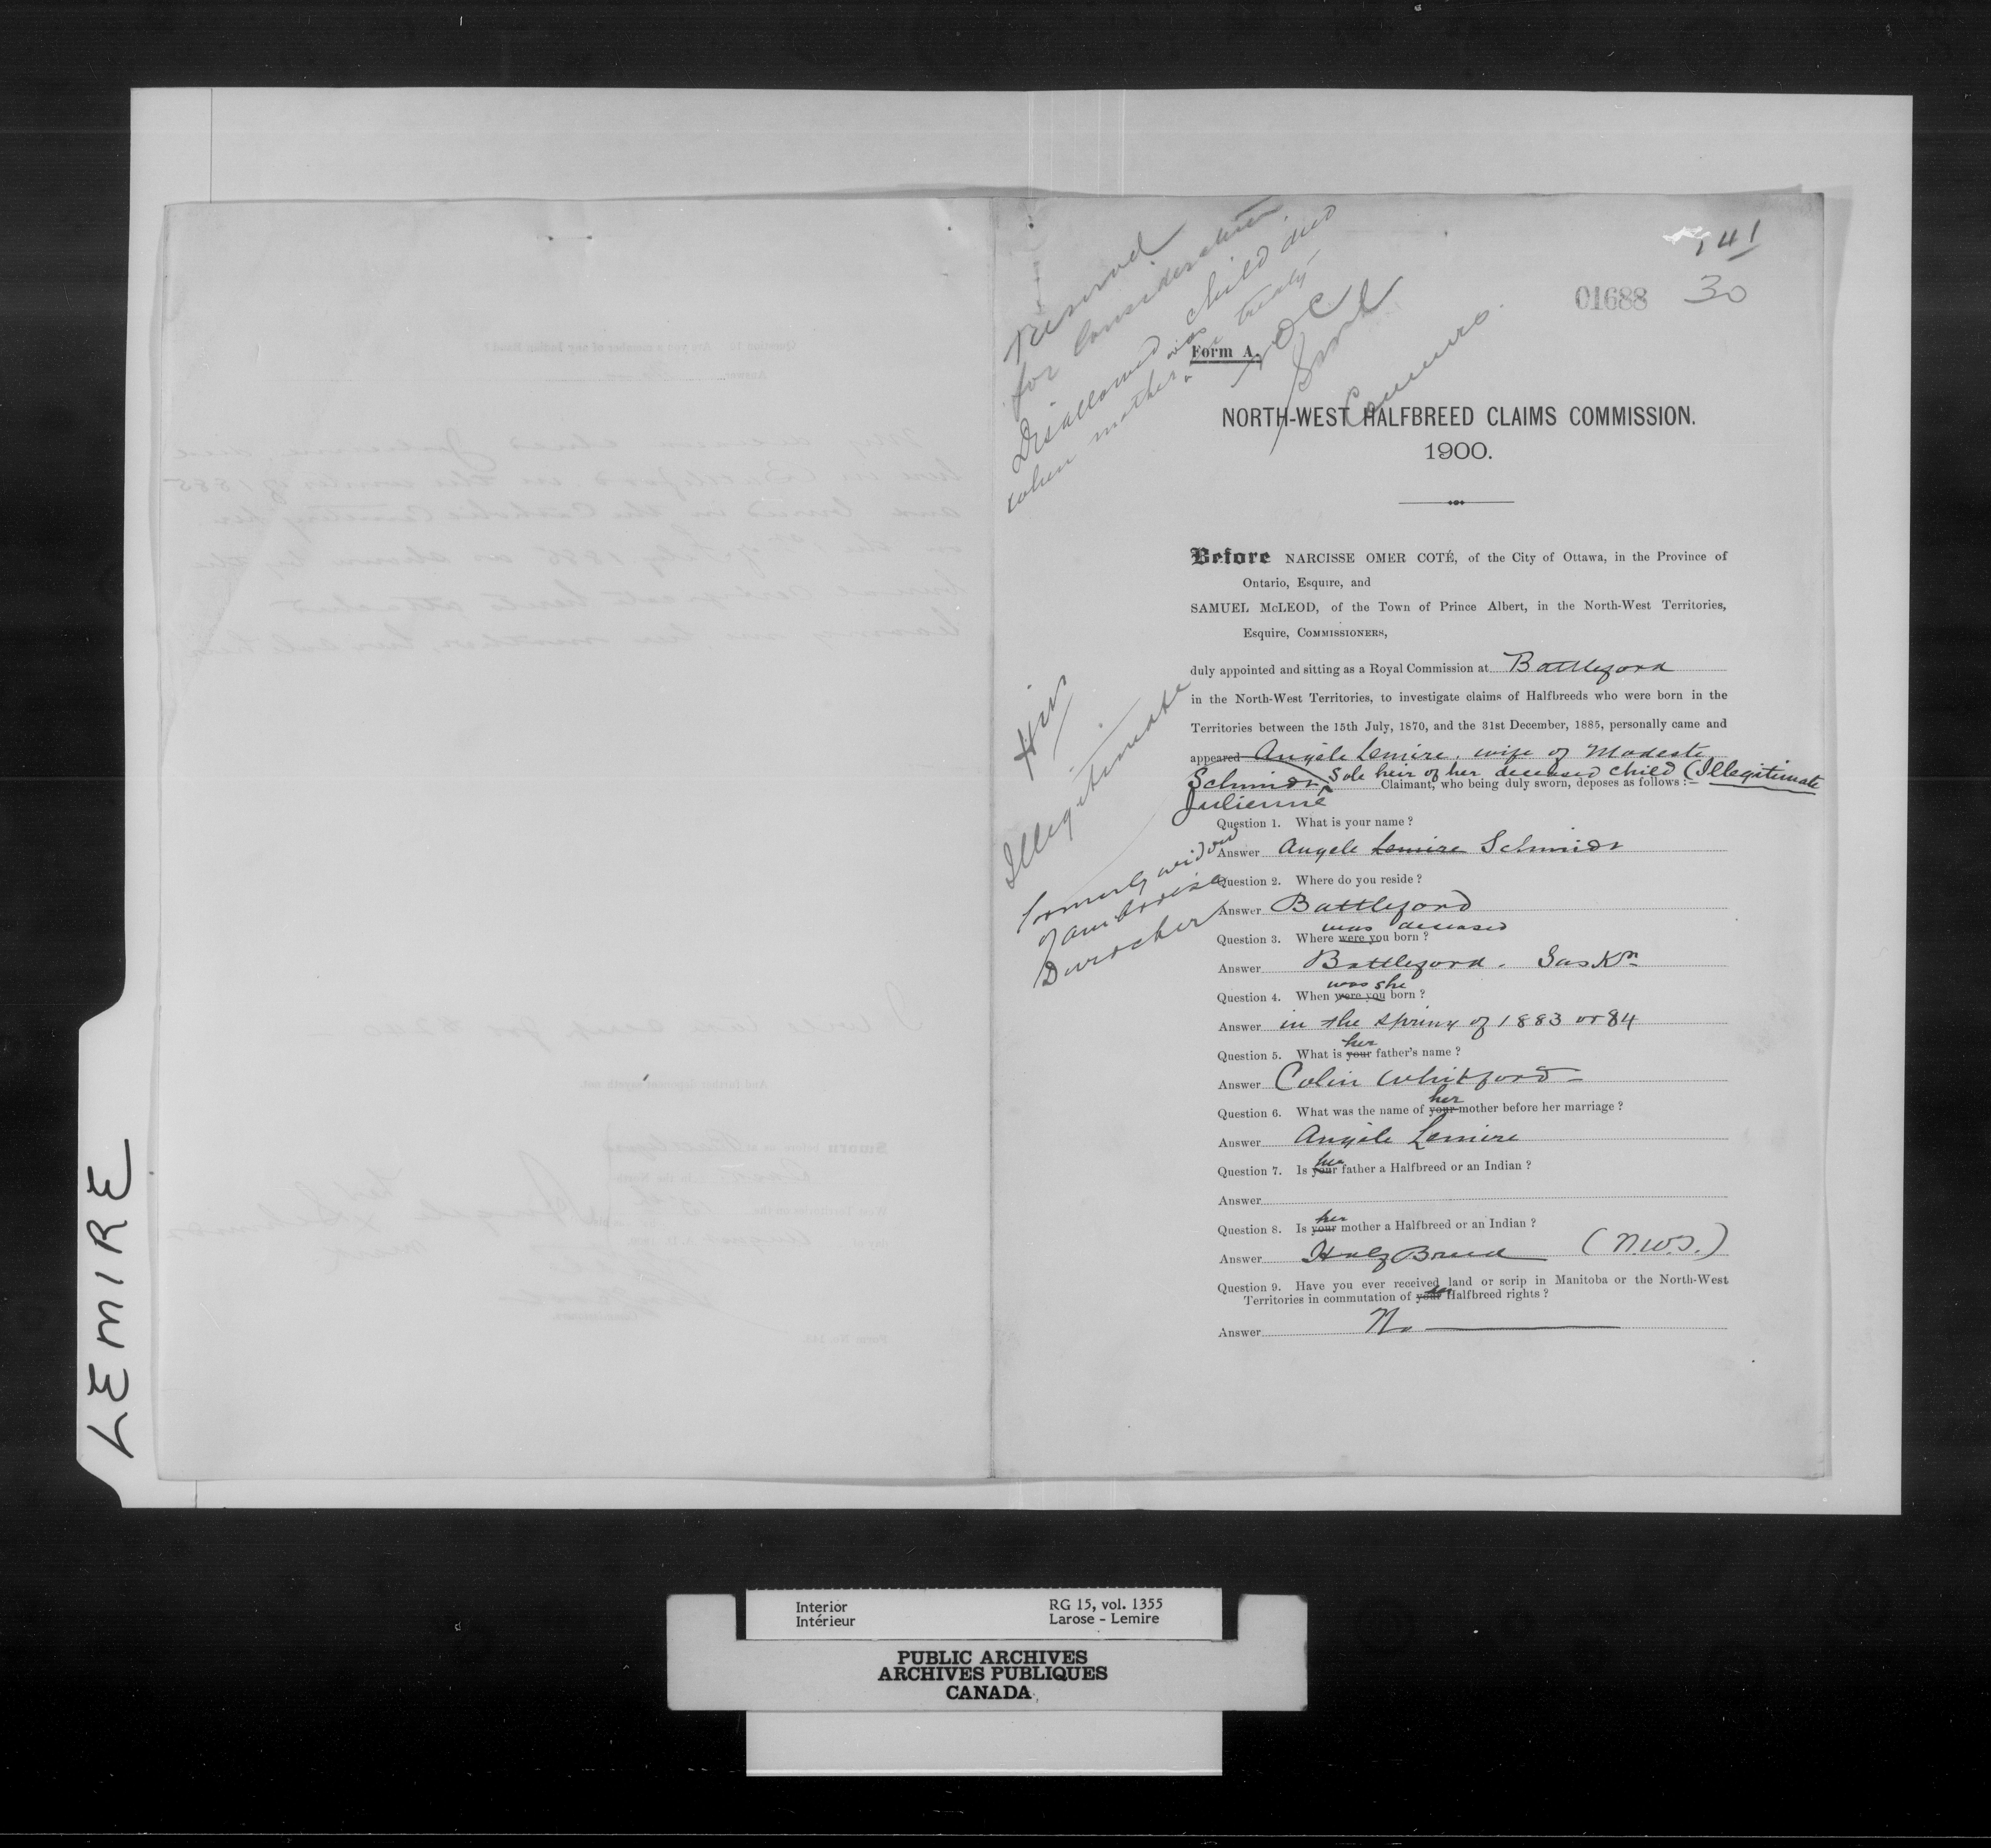 141
01688 30
Reserved
for Consideration
Disallowed child died
when mother was in treaty
NOC
Form A.
Comrs.
NORTH-WEST HALFBREED CLAIMS COMMISSION.
1900.
Before NARCISSE OMER COTÉ, of the City of Ottawa, in the Province of
Ontario, Esquire, and
SAMUEL McLEOD, of the Town of Prince Albert, in the North-West Territories,
Esquire, COMMISSIONERS,
duly appointed and sitting as a Royal Commission at Battleford
in the North-West Territories, to investigate claims of Halfbreeds who were born in the
Territories between the 15th July, 1870, and the 31st December, 1885, personally came and
appeared Angèle Lemire, wife of Modeste
Schmidt, Sole heir of her deceased child (Illegitimate
Julienne
Claimant, who being duly sworn, deposes as follows :—
Illegitimate
formerly widow
of Ambroise
Durocher
Question 1. What is your name ?
Answer Angele Lemire Schmidt
Question 2. Where do you reside ?
Answer Battleford
was deceased
Question 3. Where were you born ?
Answer Battleford. Saskn
was she
Question 4. When were you born ?
Answer in the spring of 1883 or 84
her
Question 5. What is your father's name ?
Answer Colin Whitford
her
Question 6. What was the name of your mother before her marriage ?
Answer Angèle Lemire
her
Question 7. Is your father a Halfbreed or an Indian ?
Answer
her
Question 8. Is your mother a Halfbreed or an Indian ?
Answer Half Breed (N.W.T.)
Question 9. Have you ever received land or scrip in Manitoba or the North-West
Territories in commutation of your Halfbreed rights ?
Answer No
LEMIRE
Interior RG 15, vol. 1355
Intérieur Larose - Lemire
PUBLIC ARCHIVES
ARCHIVES PUBLIQUES
CANADA